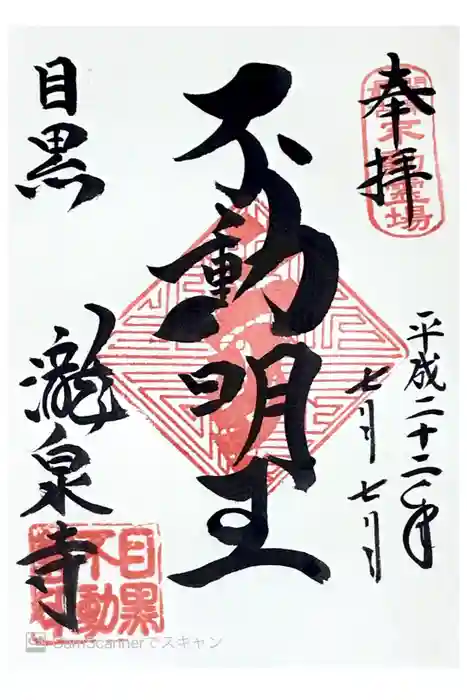 奉拝
平成二十二年
七月七日
不動明王
目黒
瀧泉寺
目黒
不動
CamScannerでスキャン